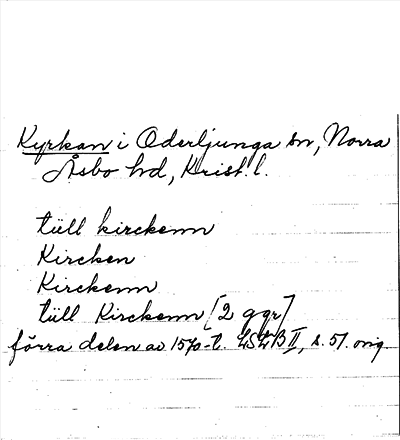 Kyrkan i Oderljunga sn, Norra
Åsbo hd, Krist. l.
tüll kirckenn
Kircken
Kirckenn
tüll Kirckenn [2 ggr]
förra delen av 1570-t. LSLB II, s. 51. orig.